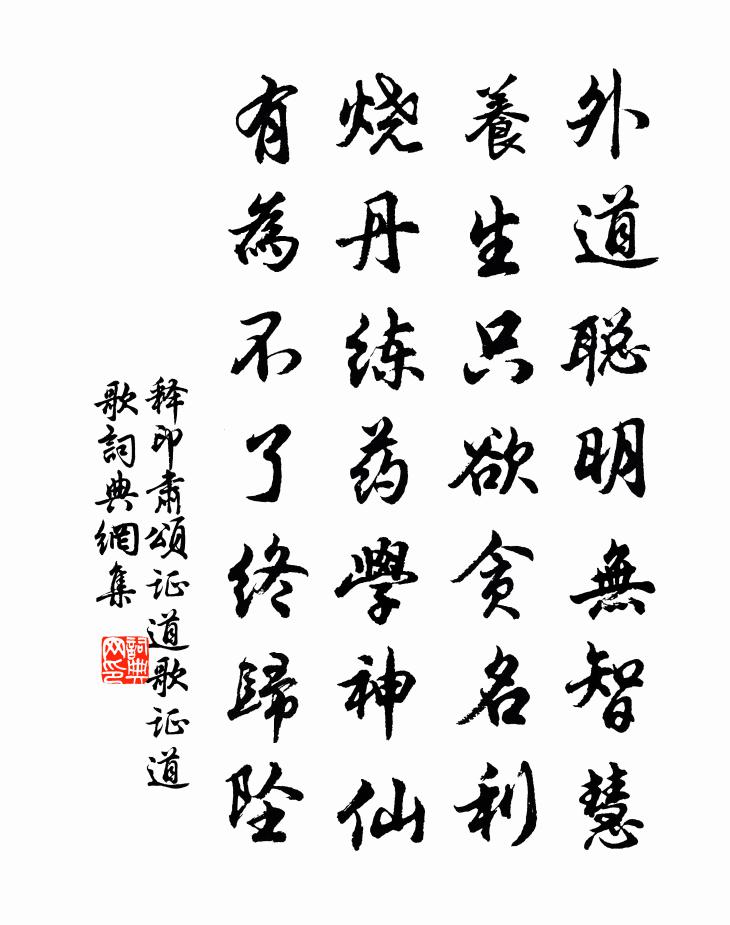 外道聪明無智慧
養生只欲贪名利
烧丹练药學神仙
有為不了终歸坠
释印肃颂证道歌证道
歌詞典網集
詞典
网印